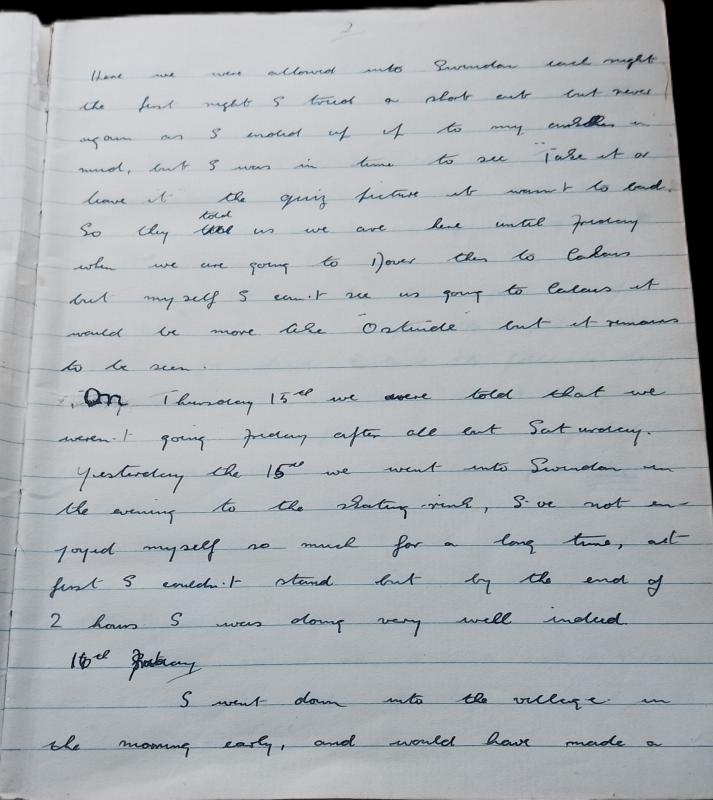 2
Here we were allowed into Swindon each night
the first night I tried a short cut but never
again as I ended up up to my in
mud, but I was in time to see "Take it or
leave it" the quiz picture it wasn't to bad.
So they told us we are here until Friday
when we are going to Dover then to Calais
but myself I can't see us going to Calais it
would be more like "Ostende" but it remains
to be seen.
On Thursday 15th we were told that we
weren't going Friday after all but Saturday.
Yesterday the 15th we went into Swindon in
the evening to the skating-rink, I've not en-
joyed myself so much for a long time, at
first I couldn't stand but by the end of
2 hours I was doing very well indeed.
16th Friday
I went down into the village in
the morning early, and would have made a